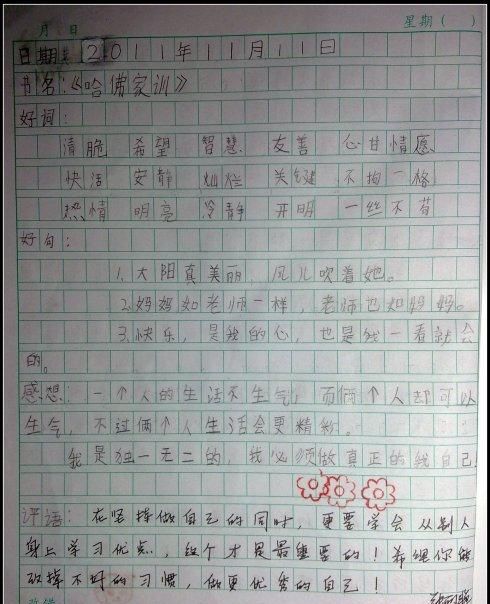 月 日 星期( )
日期: 2011年11月11日
书名:《哈佛家训》
好词:
清脆 希望 智慧 友善 心甘情愿
快活 安静 灿烂 关键 不拘一格
热情 明亮 冷静 开明 一丝不苟
好句:
1.太阳真美丽,风儿吹着她。
2.妈妈如老师一样,老师也如妈妈。
3.快乐,是我的心,也是我一看就会
的。
感想:一个人的生活不生气,而俩个人却可以
生气,不过俩个人生活会更精彩。
我是独一无二的,我必须做真正的我自己
评语:在坚持做自己的同时,更要学会从别人
身上学习优点,这个才是最重要的!希望你能
改掉不好的习惯,做更优秀的自己!